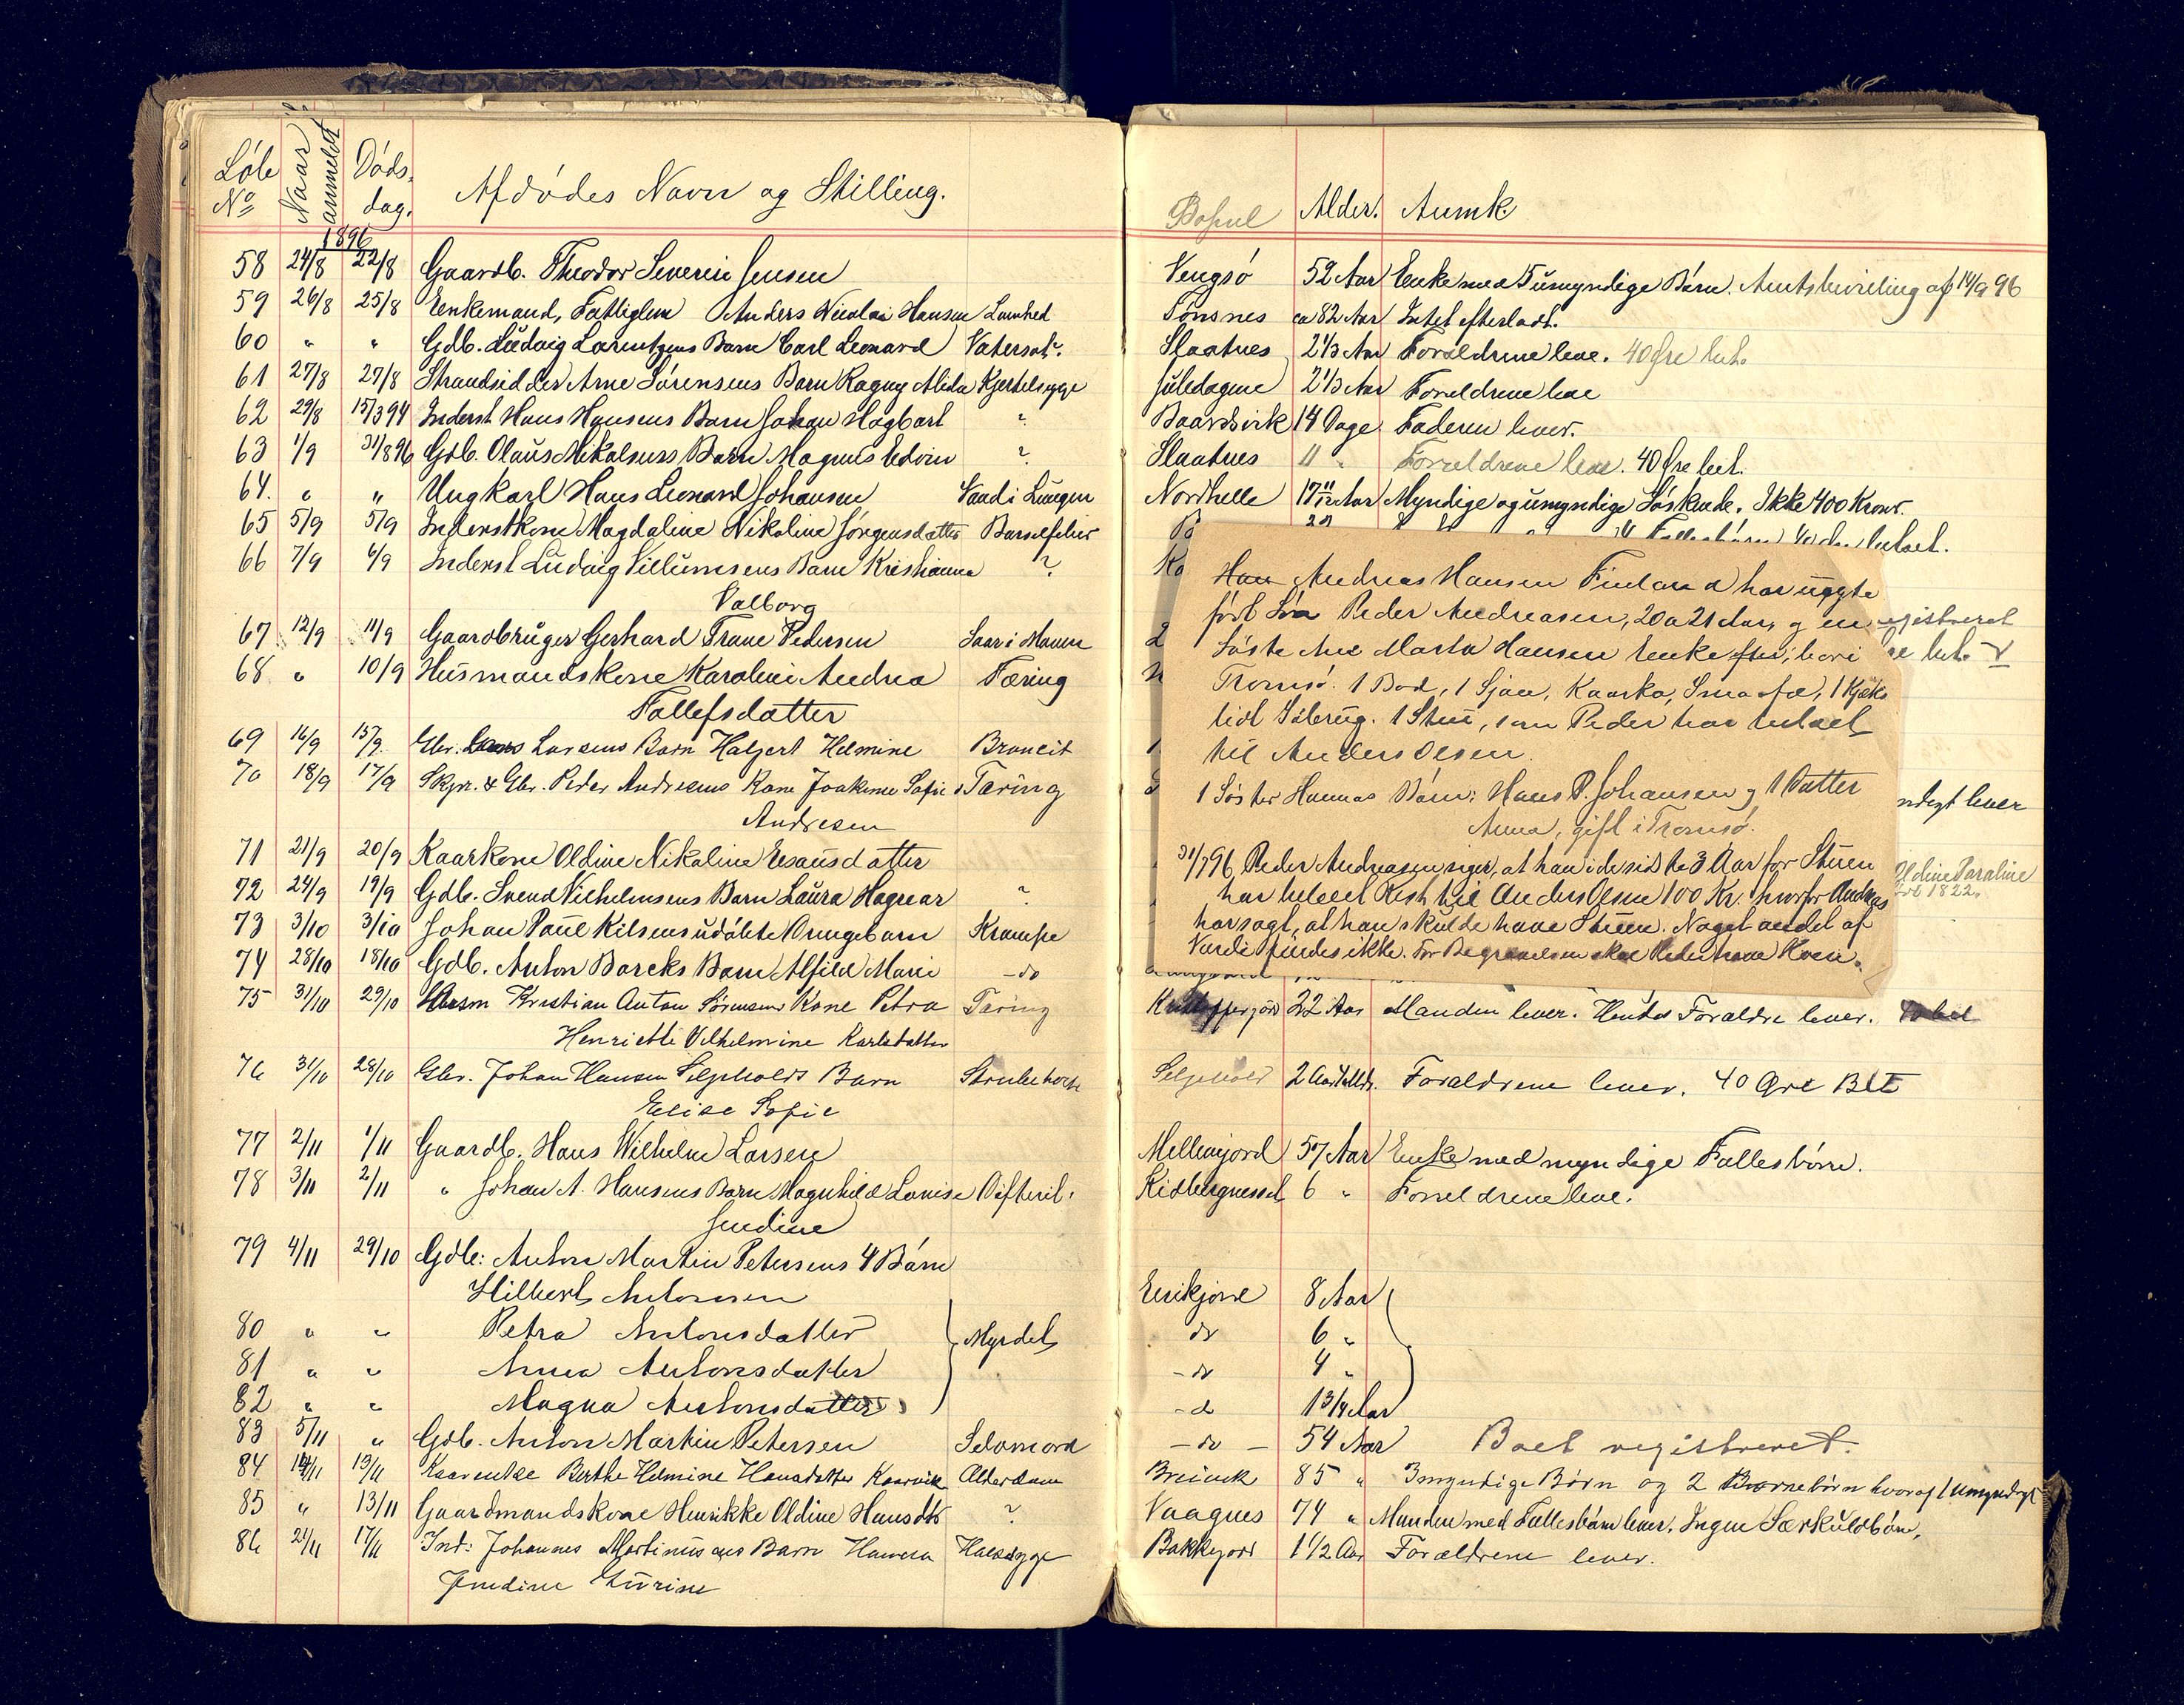 Löbe Nº Naar anmeldt Döds- dag. Afdödes Navn og Stilling.
1896
58 24/8 22/8 Gaardb. Theodor Severin Jensen
59 26/8 25/8 Enkemand, Fattiglem Anders Nicolai Hansen
60 " " Gdb. Ludvig Lorentzens Barn Carl Leonard Vatersot.
61 27/8 27/8 Strandsidder Arne Sørensens Barn Ragna Alida Kjertelsyge
62 29/8 15/3 94 Inderst Hans Hansens Barn Johan Hagbart "
63 1/9 31/8 96 Gdb. Olaus Mikalsens Barn Magnus Edvin ?
64. " " Ungkarl Hans Leonard Johansen Vand i Lungen
65 5/9 5/9 Inderstkone Magdaline Nikoline Jörgensdatter Barselfeber
66 7/9 6/9 Inderst Ludvig Villumsens Barn Kristianna ?
Valborg
67 12/9 11/9 Gaardbruger Gerhard Trane Pedersen Saar i Maven
68 " 10/9 Husmandskone Karoline Andrea Tæring
Tollefsdatter
69 16/9 15/9 Gbr. Larsens Barn Halgert Helmine Broncit
70 18/9 17/9 Skpr. & Gbr. Peder Andresens Kone Joakime Sofie Tæring
Andresen
71 21/9 20/9 Kaarkone Oldine Nikoline Esausdatter
72 24/9 19/9 Gdb. Svend Vilhelmsens Barn Laura Hagnar ?
73 3/10 3/10 Johan Paul Kilsens udöbte Drengebarn Krampe
74 28/10 18/10 Gdb. Anton Barcks Barn Alfild Marie - do
75 31/10 29/10 Husm Kristian Anton Sørensens Kone Petra Tæring
Henriette Vilhelmine Karlsdatter
76 31/10 28/10 Gbr. Johan Hansen Seljeholdt Barn Strubehoste
Elise Sofie
77 2/11 1/11 Gaardb. Hans Wilhelm Larsen
78 3/11 2/11 " Johan A. Hansens Barn Magnhild Lovise Difterit.
Jendine
79 4/11 29/10 Gdb: Anton Martin Petersens 4 Börn
Hilbert Antonsen
80 " " Petra Antonsdatter Myrdet
81 " " Anna Antonsdatter
82 " " Magna Antonsdatter
83 5/11 " Gdb. Anton Martin Petersen Selvmord
84 14/11 13/11 Kaarenke Berthe Helmine Hansdatter Kaarvik Alderdom
85 " 13/11 Gaardmandskone Henrikke Oldine Hansdtr ?
86 21/11 17/11 Ind: Johannes Martinussens Barn Hanna Halssyge
Jendine
Bopæl Alder. Anmk
Vengsö 52 Aar Enke med 5 umyndige Börn. Amtsbevilling af 14/9 96
Tönsnes ca 82 Aar Intet efterladt.
Slaatnes 2 1/3 Aar Forældrene leve. 40 Øre bet.
2 1/3 Aar Forældrene leve
Baardsvik 14 Dage Faderen lever.
Slaatnes 11 " Forældrene leve. 40 Öre bet.
Nordhelle 17 11/12 Aar Myndige og umyndige Söskende. Ikke 400 Kroner.
Han Andreas Hansen Finland har uægte
födt Sön Peder Andreasen, 20 a 21 Aar, og en
Söster Ane Marta Hansen Enke efter, bor i
Tromsö. 1 Bod, 1 Sjaa, Kaarko, Smaafæ, 1 Kjøks
lidt Söbrug. 1 Stue, som Peder har betalt
til Anders Olsen.
1 Söster Hannas Börn: Hans P. Johansen og 1 Datter
Anna, gift i Tromsö.
31/7 96 Peder Andreasen siger, at han i de sidste 3 Aar for Stuen
har betalt Rest til Anders Olsen 100 Kr. hvorfor Andreas
har sagt, at han skulde have Stuen. Noget andet af
Værdi findes ikke. For Begravelsen skal Peder have Koen.
egistreret
ndigt lever
Oldine Paroline
1822.
22 Aar Manden lever. Hendes Forældre lever.
Seljehold 2 Aar Forældrene lever. 40 Øre Bet
Mellemjord 57 Aar Enke med myndige Fællesbörn.
6 " Forældrene leve.
8 Aar
do 6 "
- do 4 "
- do 1 3/4 Aar
- do - 54 Aar Boet registreret.
Breivik 85 " 3 myndige Børn og 2 Børnebørn hvoraf 1 umyndigt
Vaagnes 74 " Manden med Fællesbörn lever. Ingen Særkuldbörn.
Bakkejord 1 1/2 Aar Forældrene lever.